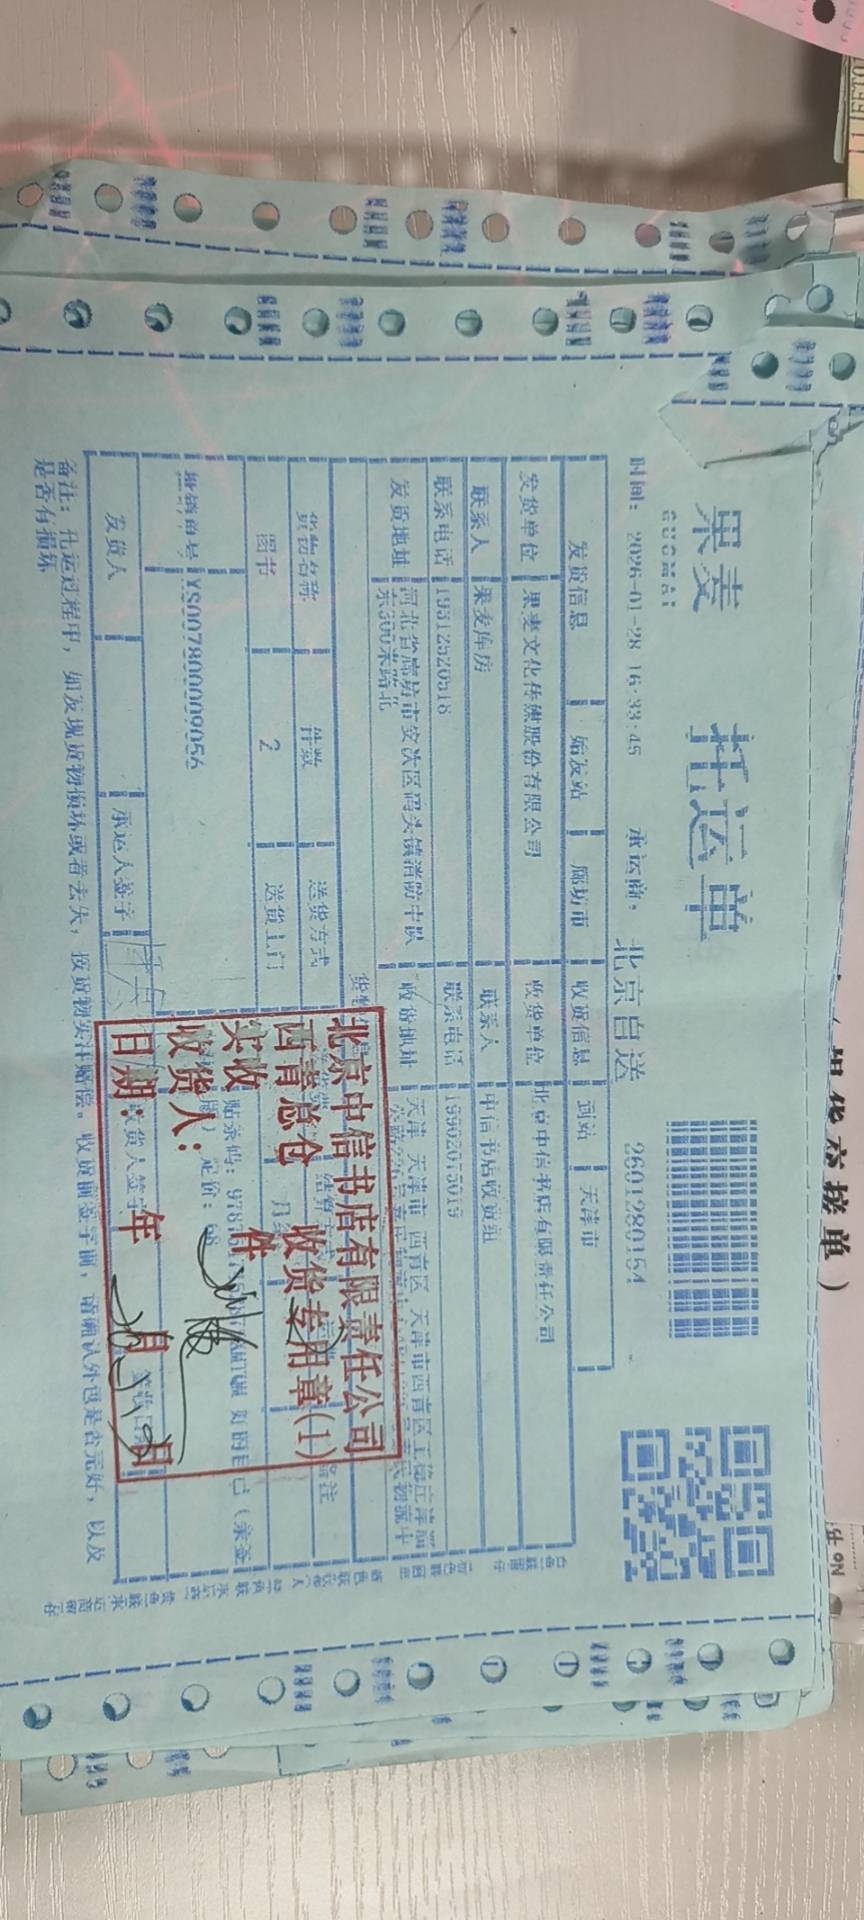 果麦
GUOMAI
托运单
时间： 2026-01-28 16:33:45 承运商： 北京自送 2601280154
发货信息 始发站 廊坊市 收货信息 到站 天津市
发货单位 果麦文化传媒股份有限公司 收货单位 北京中信书店有限责任公司
联系人 果麦库房 联系人 中信书店收货组
联系电话 19312520518 联系电话 19902075015
发货地址 河北省廊坊市安次区码头镇消防中队 收货地址 天津 天津市 西青区 天津市西青区
东500米路北
货物名称 件数 送货方式
图书 2 送货上门
推销单号 XS007800009056
定价：68
发货人 承运人签字 收货人签字
备注：托运过程中，如发现货物损坏或者丢失，按货物实洋赔偿。收货前签字前，请确认外包是否完好，以及
是否有损坏
北京中信书店有限责任公司
西青总仓 收货专用章(1)
实收 件
收货人：
日期： 年 月 日